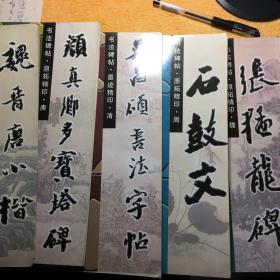 魏晋唐小楷
书法碑帖·原拓精印·唐
颜真卿多宝塔碑
书法碑帖·墨迹精印·清
吴昌硕书法字帖
书法碑帖·原拓精印·周
石鼓文
书法碑帖·原拓精印·魏
张猛龙碑